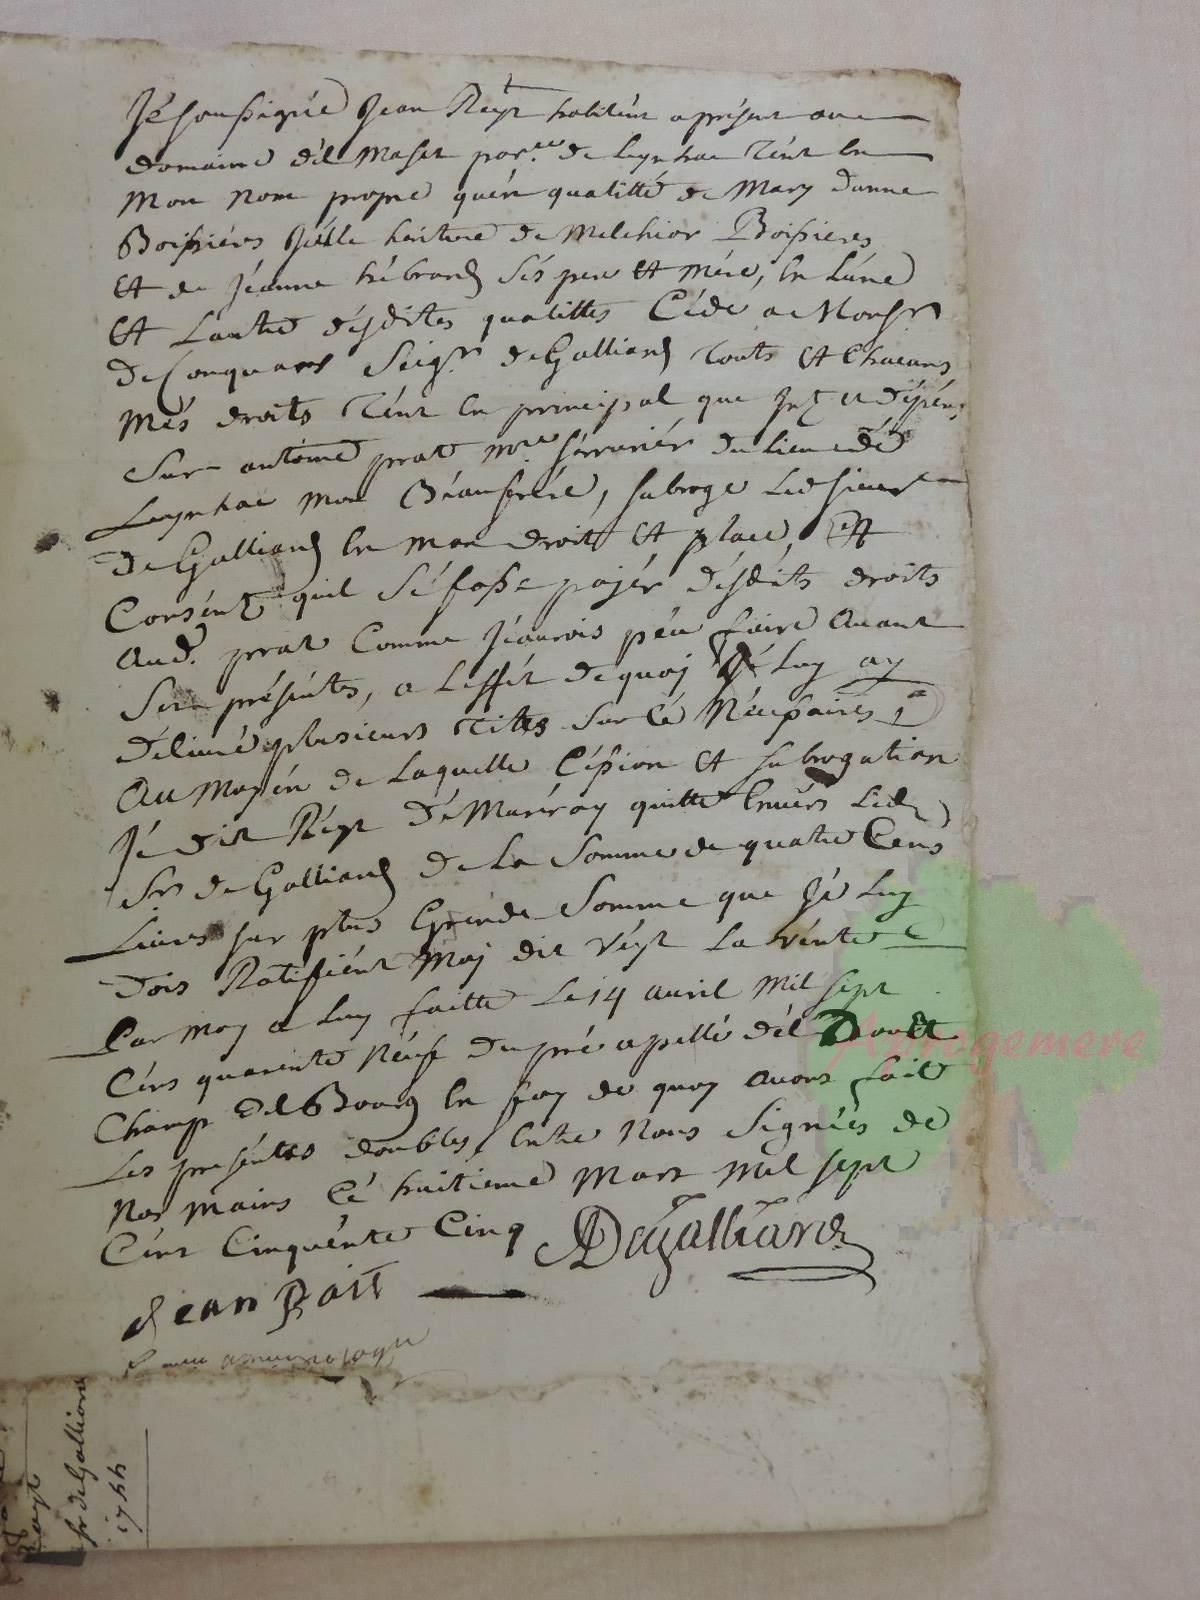 Jé soussigné Jean Reyt habitént aprésent au
domaine dél Masét par.sse de Leynhac tént én
mon nom propre quén qualitté de Mary danne
Boissiéres fille héritiere de Melchior Boissieres
et de Jéanne hébrard sés pere et mére, én lune
et lautre désdites qualittés Céde a Monsr
de Conquans Seigr. de Galliard touts et Chacuns
més droits tént én principal que int et dépéns
Sur antoine prat mre sérruriér du lieu dé
Leynhac mon Béaufrére, subroge Led sieur
de Galliard én mon droit et place, et
Consént quil sé fasse payér désdits droits
Aud. prat Comme jéaurois péu faire avant
Sés présentes, a Leffét de quoj jé Luy ay
délivré plusieurs titres sur cé Nécessaires
Au moyén de Laquelle Céssion et subrogation
Jé dit Réyt déMuréroy quitte Envérs Led
Sr de Galliard de La Somme de quatre Cens
Livres sur plus Grénde Somme que Jé Luy
Dois Ratifiént Moj dit réyt La vénte
Par moy a luy faitte Le 14 avril mil sept
Céns quarénte Néuf du pré apellé dél Bouét
Champ dél Bourg én foy de quoy avons fait
Les présentes doubles Entre Nous Signées de
Nos mains Cé huitieme Mars mil sept
Cént Cinquénte Cinq DeGalliard
Jean Rait
Sr de Galliard
1755
Aprogemere